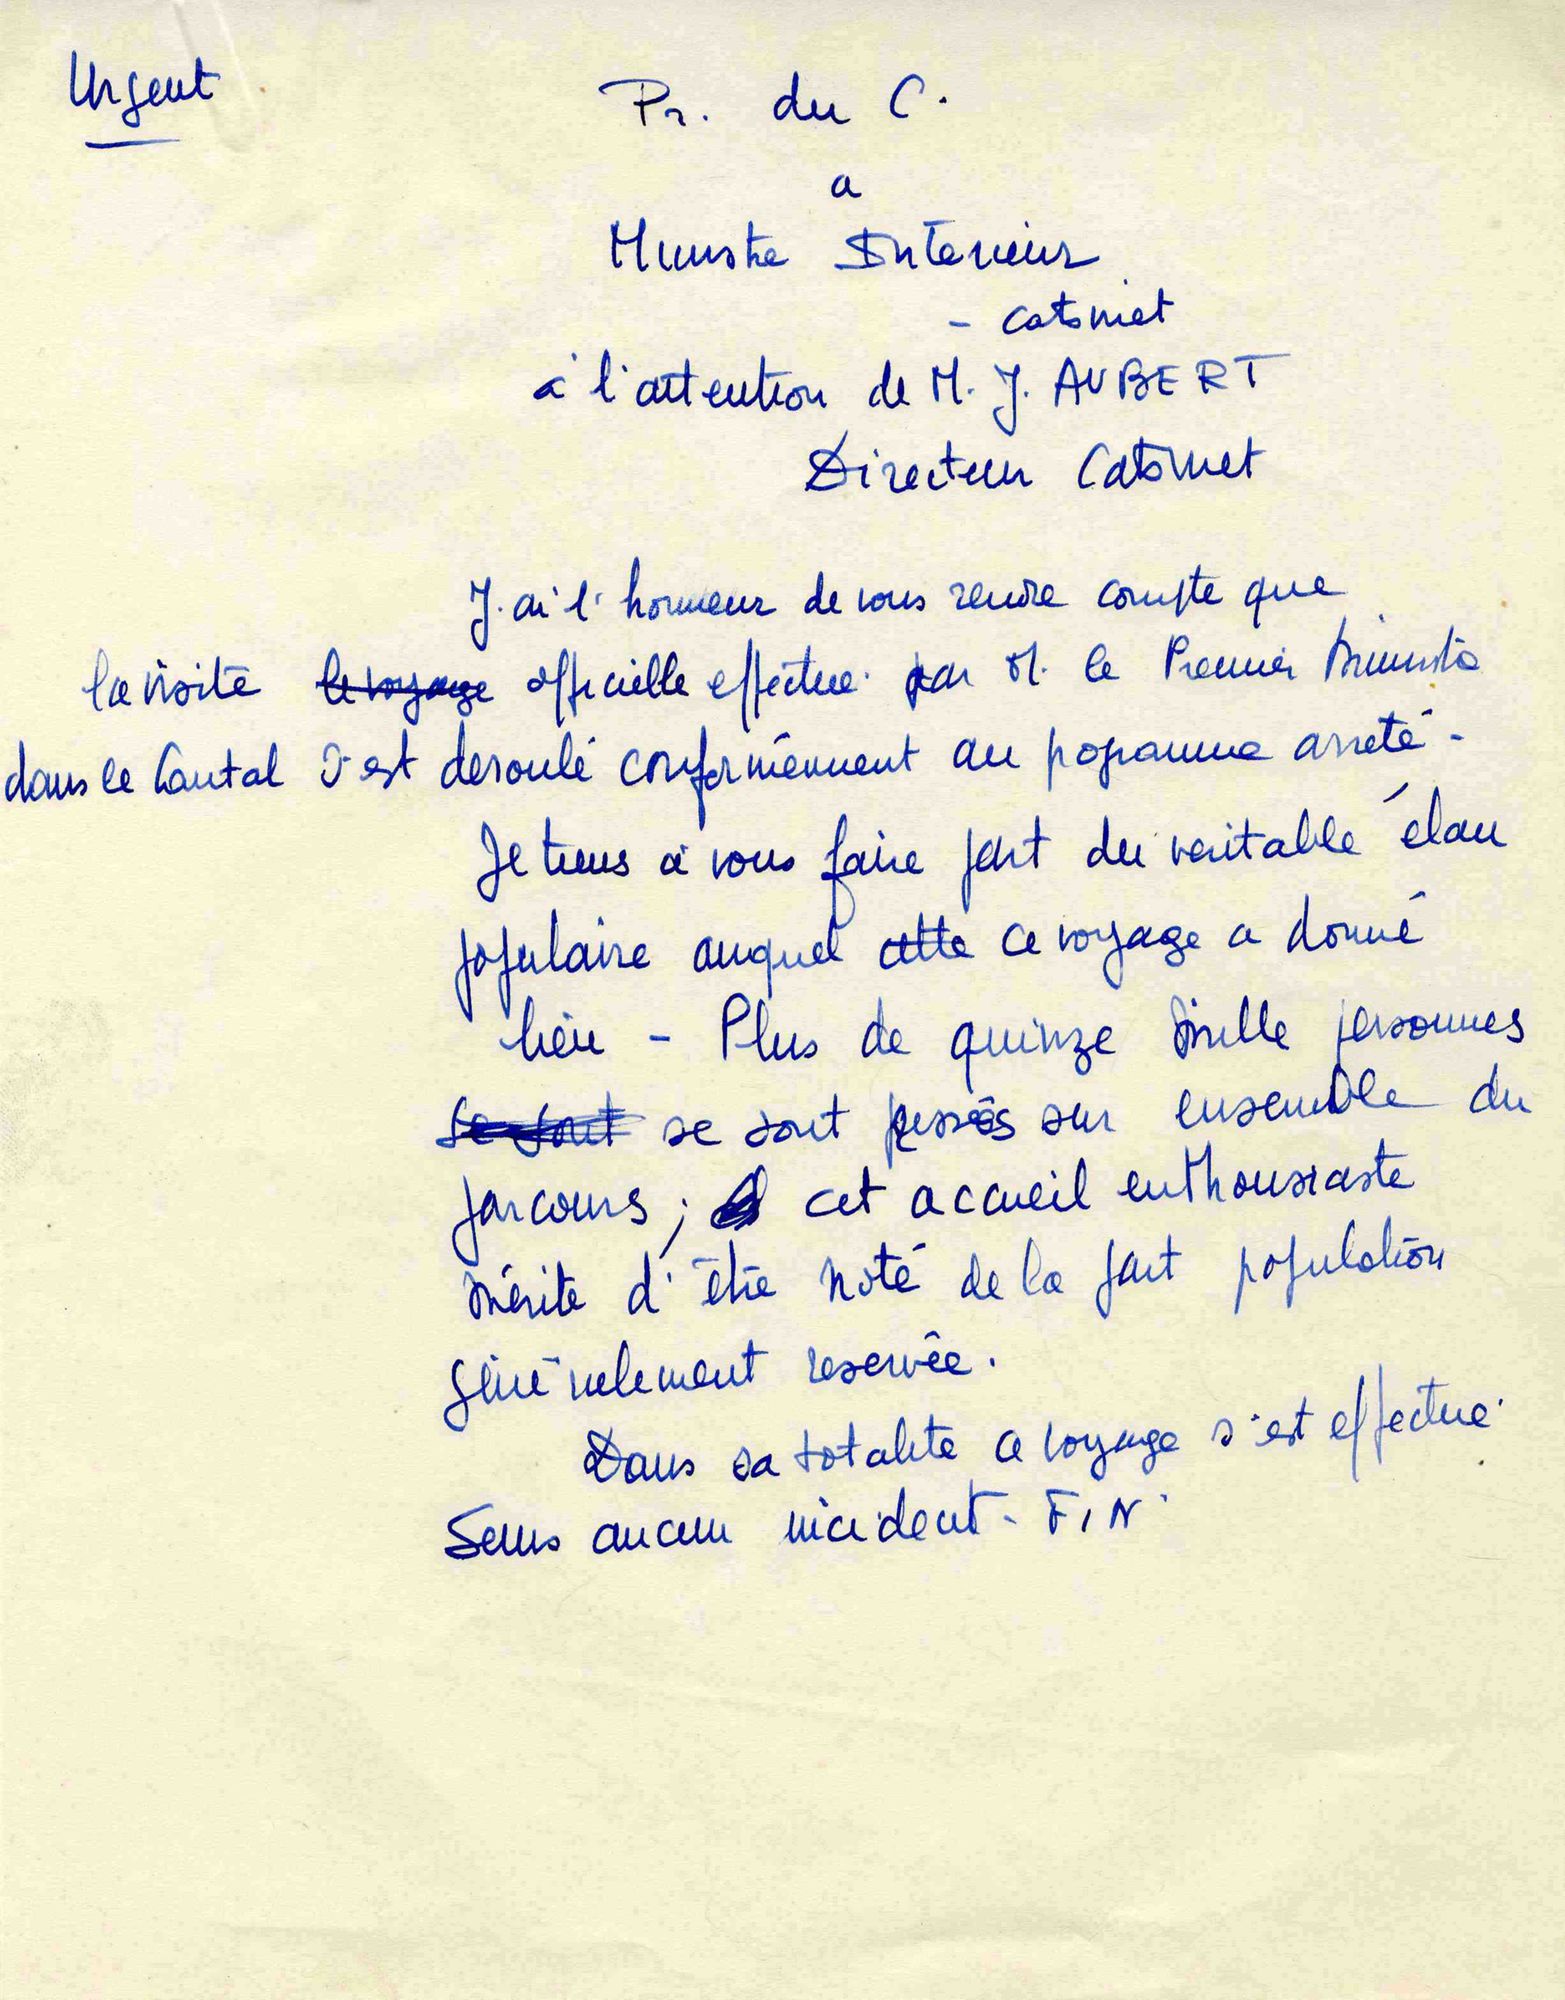 Urgent
Pr. du C.
a
Ministre Intérieur
- Cabinet
à l'attention de M. J. AUBERT
Directeur Cabinet
J'ai l'honneur de vous rendre compte que
la visite le voyage officielle effectué par M. le Premier Ministre
dans le Cantal s'est deroulé conformément au programme arreté -
Je tiens à vous faire part du veritable élan
populaire auquel cette ce voyage a donné
lieu - Plus de quinze mille personnes
se sont se sont sur ensemble du
parcours ; cet accueil enthousiaste
mérite d'être noté de la part population
généralement reservée.
Dans sa totalite ce voyage s'est effectué
Sans aucun incident - FIN